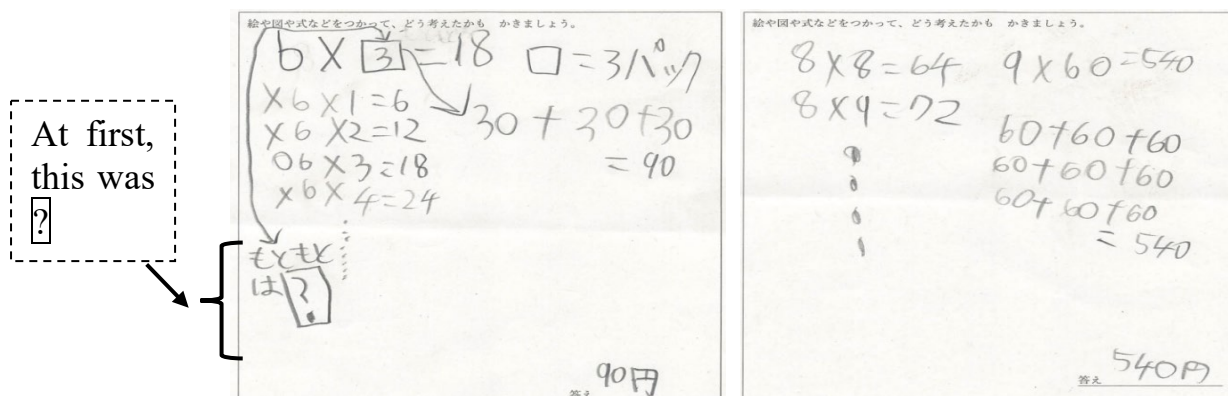 At first,
this was
?
絵や図や式などをつかって、どう考えたかも かきましょう。
6×3=18 □=3パック
×6×1=6
×6×2=12
06×3=18
×6×4=24
30+30+30
=90
もともと
は?
答え 90円
絵や図や式などをつかって、どう考えたかも かきましょう。
8×8=64
8×9=72
9×60=540
60+60+60
60+60+60
60+60+60
=540
答え 540円